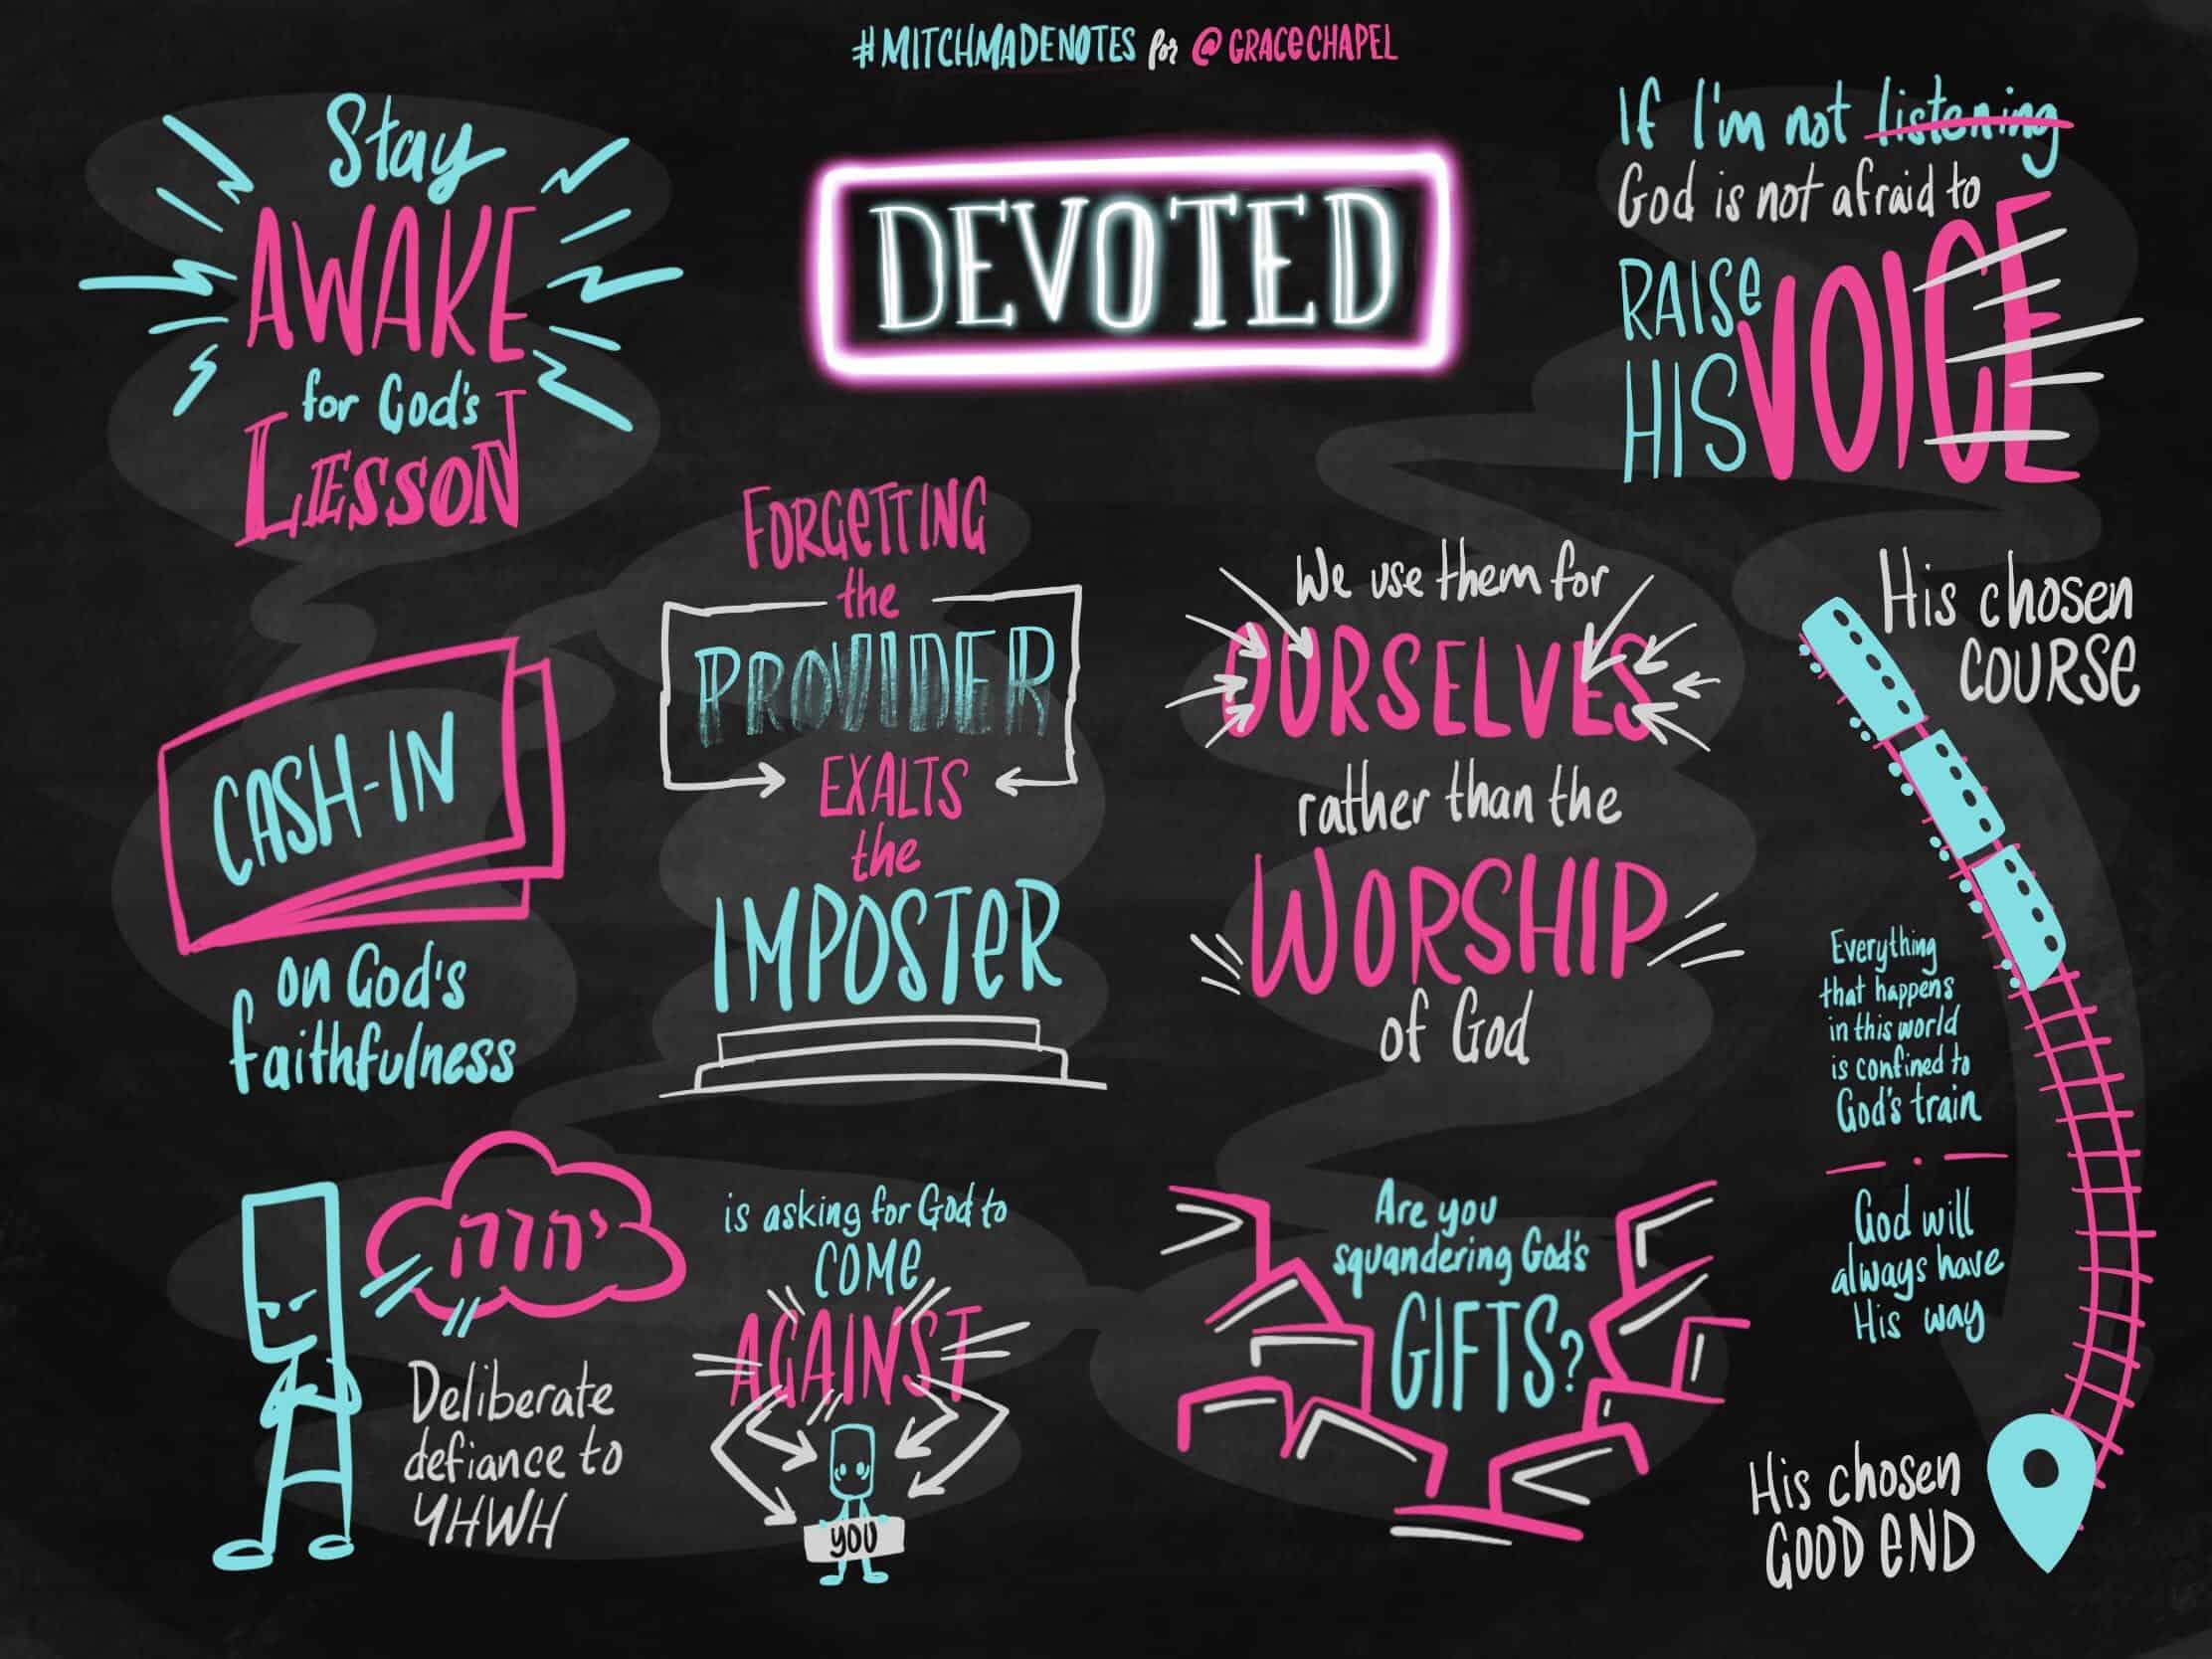 #MITCHMADENOTES for @GRACECHAPEL
DEVOTED
Stay
AWAKE
for God's
LESSON
CASH-IN
on God's
faithfulness
יהוה
Deliberate
defiance to
YHWH
is asking for God to
COME
AGAINST
YOU
FORGETTING
the
PROVIDER
EXALTS
the
IMPOSTER
We use them for
OURSELVES
rather than the
WORSHIP
of God
Are you
squandering God's
GIFTS?
If I'm not listening
God is not afraid to
RAISE
HIS VOICE
His chosen
COURSE
Everything
that happens
in this world
is confined to
God's train
God will
always have
His way
His chosen
GOOD END